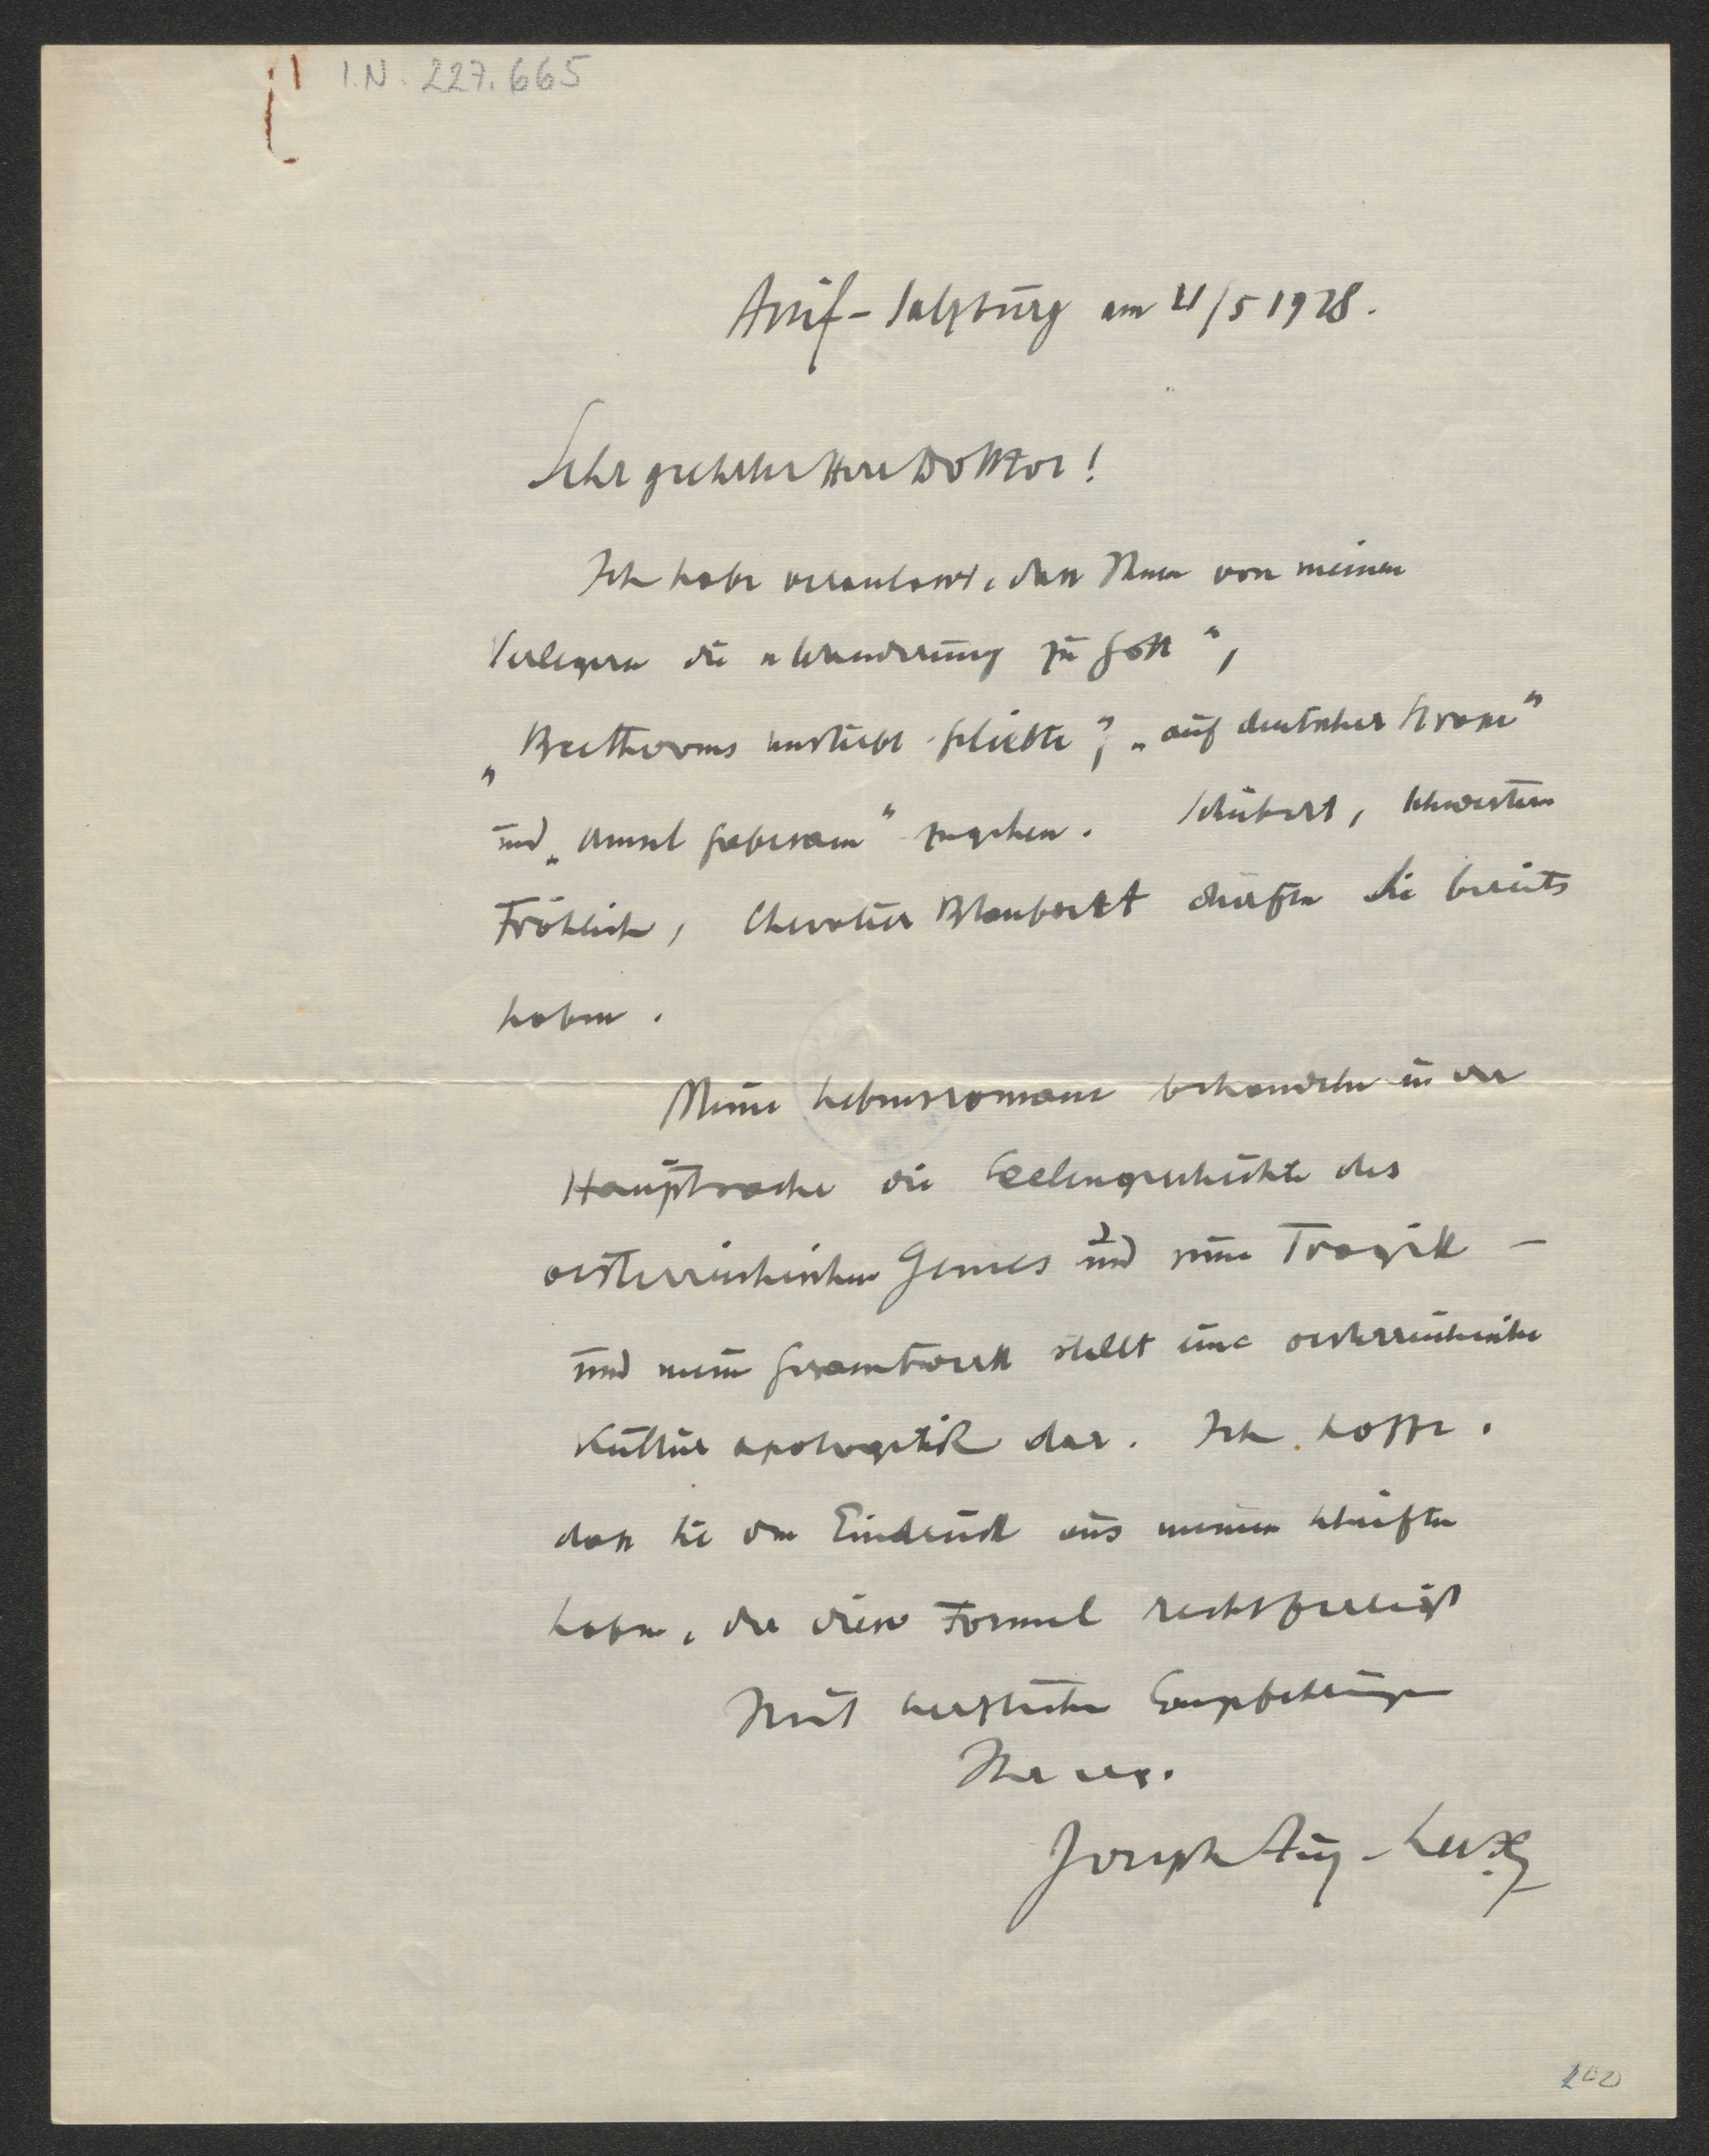 I.N. 227.665
Anif-Salzburg am 21/5 1928.
Sehr geehrter Herr Doktor!
Ich habe veranlasst, dass Ihnen von meinen
Verlegern die „Wanderung zu Gott“,
„Beethovens unsterbl. Geliebte“, „auf deutscher Strasse“
und „Amsel Gabesam“ zugehen. Schubert, Schwestern
Fröhlich, Chevalier Blaubart dürften Sie bereits
haben.
Meine Lebensromane behandeln in der
Hauptsache die Seelengeschichte des
oesterreichischen Genies und seine Tragik –
und mein Gesamtwerk stellt eine oesterreichische
Kultur apologetik dar. Ich hoffe,
dass Sie den Eindruck aus meinen Schriften
haben, der diese Formel rechtfertigt
Mit herzlichen Empfehlungen
Ihr erg.
Joseph Aug. Lux